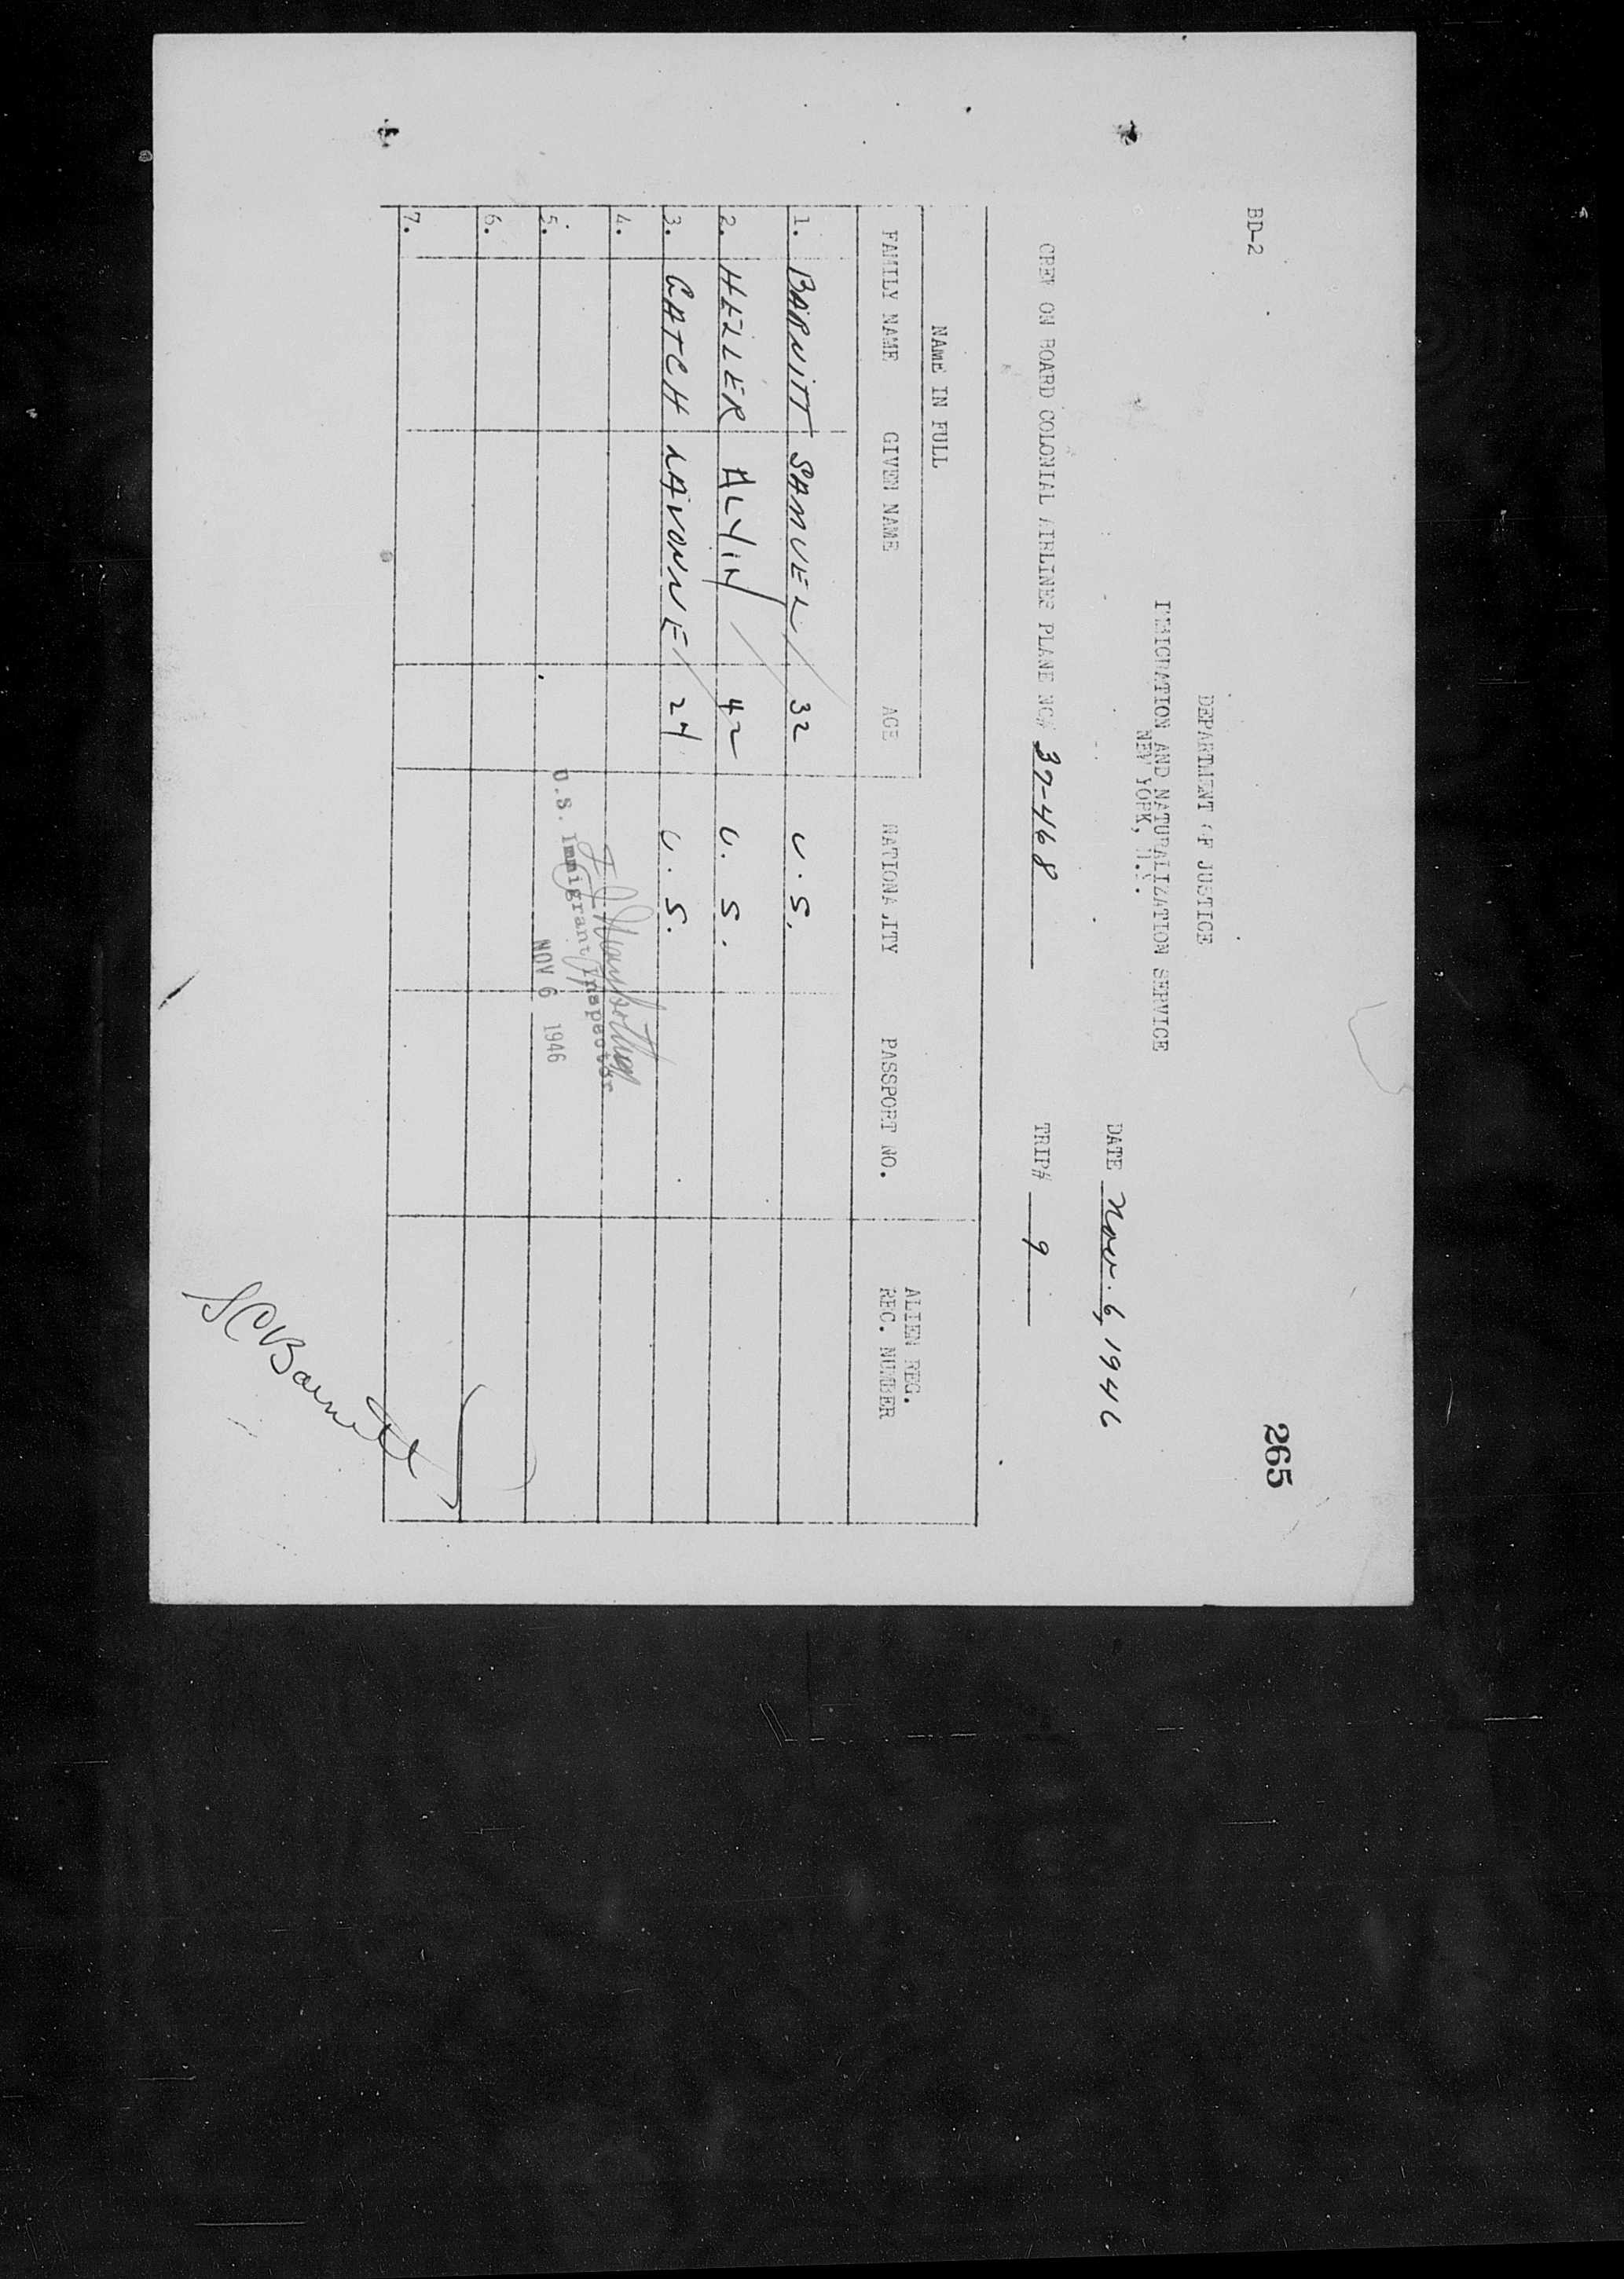 BD-2
265
DEPARTMENT OF JUSTICE
IMMIGRATION AND NATURALIZATION SERVICE
NEW YORK, N.Y.
DATE Nov. 6, 1946
CREW ON BOARD COLONIAL AIRLINES PLANE NC# 37-468 TRIP# 9
NAME IN FULL
FAMILY NAME GIVEN NAME AGE NATIONALITY PASSPORT NO. ALIEN REG. REC. NUMBER
1. BARNITT SAMUEL 32 U.S.
2. HELLER ALVIN 42 U.S.
3. GATCH LAVONNE 24 U.S.
4.
5.
6.
7.
U.S. Immigrant Inspector
NOV 6 1946
SCBarnitt